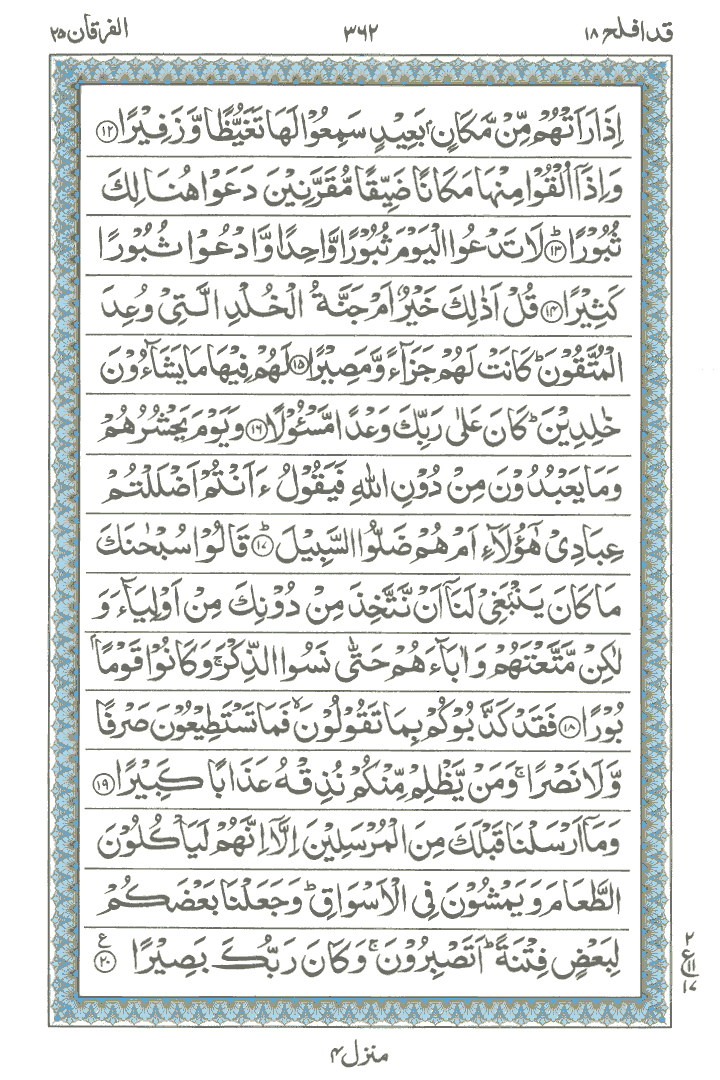 قد افلح ۱۸ ۳۶۲ الفرقان ۲۵
اِذَا رَاَتْهُمْ مِّنْ مَّكَانٍۭ بَعِيْدٍ سَمِعُوْا لَهَا تَغَيُّظًا وَّ زَفِيْرًا ﴿۱۲﴾
وَ اِذَاۤ اُلْقُوْا مِنْهَا مَكَانًا ضَيِّقًا مُّقَرَّنِيْنَ دَعَوْا هُنَالِكَ
ثُبُوْرًا ؕ﴿۱۳﴾ لَا تَدْعُوا الْيَوْمَ ثُبُوْرًا وَّاحِدًا وَّ ادْعُوْا ثُبُوْرًا
كَثِيْرًا ﴿۱۴﴾ قُلْ اَذٰلِكَ خَيْرٌ اَمْ جَنَّةُ الْخُلْدِ الَّتِيْ وُعِدَ
الْمُتَّقُوْنَ ؕ كَانَتْ لَهُمْ جَزَآءً وَّ مَصِيْرًا ﴿۱۵﴾ لَهُمْ فِيْهَا مَا يَشَآءُوْنَ
خٰلِدِيْنَ ؕ كَانَ عَلٰى رَبِّكَ وَعْدًا مَّسْـُٔوْلًا ﴿۱۶﴾ وَ يَوْمَ يَحْشُرُهُمْ
وَ مَا يَعْبُدُوْنَ مِنْ دُوْنِ اللّٰهِ فَيَقُوْلُ ءَاَنْتُمْ اَضْلَلْتُمْ
عِبَادِيْ هٰۤؤُلَآءِ اَمْ هُمْ ضَلُّوا السَّبِيْلَ ؕ﴿۱۷﴾ قَالُوْا سُبْحٰنَكَ
مَا كَانَ يَنْۢبَغِيْ لَنَاۤ اَنْ نَّتَّخِذَ مِنْ دُوْنِكَ مِنْ اَوْلِيَآءَ وَ
لٰكِنْ مَّتَّعْتَهُمْ وَ اٰبَآءَهُمْ حَتّٰى نَسُوا الذِّكْرَ ۚ وَ كَانُوْا قَوْمًۢا
بُوْرًا ﴿۱۸﴾ فَقَدْ كَذَّبُوْكُمْ بِمَا تَقُوْلُوْنَ ۙ فَمَا تَسْتَطِيْعُوْنَ صَرْفًا
وَّ لَا نَصْرًا ۚ وَ مَنْ يَّظْلِمْ مِّنْكُمْ نُذِقْهُ عَذَابًا كَبِيْرًا ﴿۱۹﴾
وَ مَاۤ اَرْسَلْنَا قَبْلَكَ مِنَ الْمُرْسَلِيْنَ اِلَّاۤ اِنَّهُمْ لَيَاْكُلُوْنَ
الطَّعَامَ وَ يَمْشُوْنَ فِي الْاَسْوَاقِ ؕ وَ جَعَلْنَا بَعْضَكُمْ
لِبَعْضٍ فِتْنَةً ؕ اَتَصْبِرُوْنَ ۚ وَ كَانَ رَبُّكَ بَصِيْرًا ﴿۲۰﴾ ع
۲
ع ۱۱
۱۷
منزل ۴